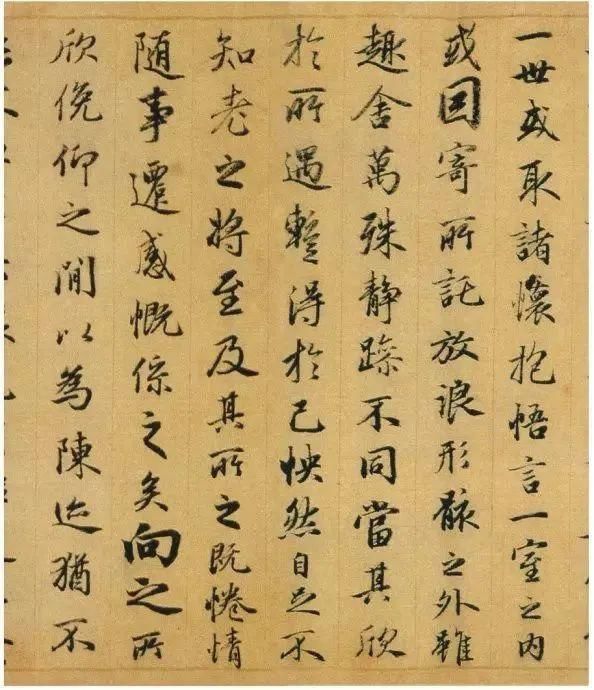 一世或取諸懷抱悟言一室之內
或因寄所託放浪形骸之外雖
趣舍萬殊靜躁不同當其欣
於所遇蹔得於己怏然自足不
知老之將至及其所之既惓情
隨事遷感慨係之矣向之所
欣俛仰之閒以為陳迹猶不